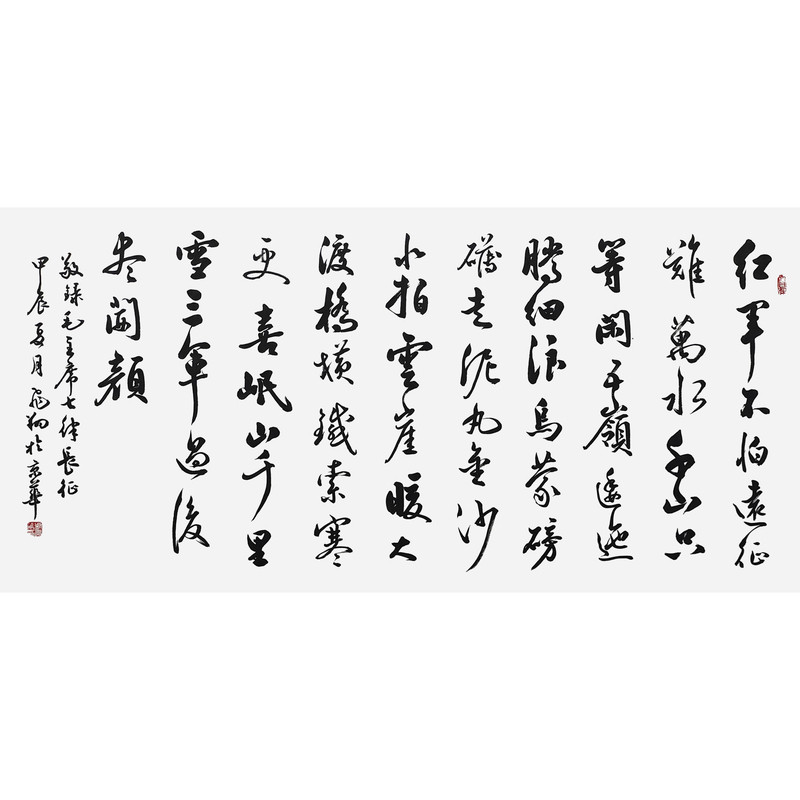 紅軍不怕遠征
難萬水千山只
等閑五嶺逶迤
騰細浪烏蒙磅
礴走泥丸金沙
水拍雲崖暖大
渡橋橫鐵索寒
更喜岷山千里
雪三軍過後
尽開顏
敬錄毛主席七律長征
甲辰夏月飛於京華